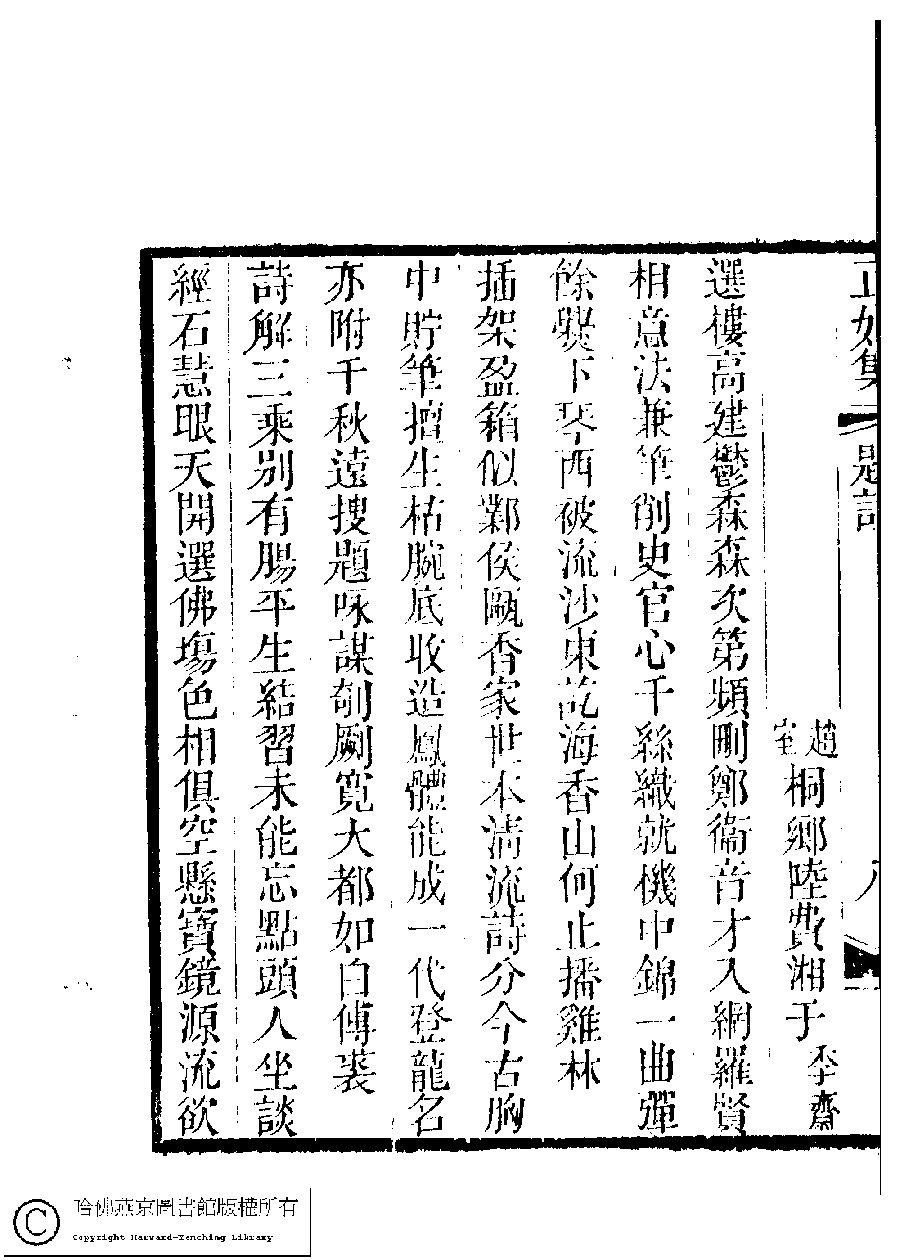 正始集 題詞 八
桐鄉陸費湘于 季齋 趙室
選樓高建鬱森森次第頻刪鄭衞音才入網羅賢
相意法兼筆削史官心千絲織就機中錦一曲彈
餘爨下琴西被流沙東訖海香山何止播雞林
插架盈箱似鄴侯甌香家世本清流詩分今古胸
中貯筆擅生枯腕底收造鳳體能成一代登龍名
亦附千秋遠搜題咏謀剞劂寬大都如白傅裘
詩解三乘別有腸平生結習未能忘點頭人坐談
經石慧眼天開選佛塲色相俱空懸寶鏡源流欲
哈佛燕京圖書館版權所有
Copyright Harvard-Yenching Library